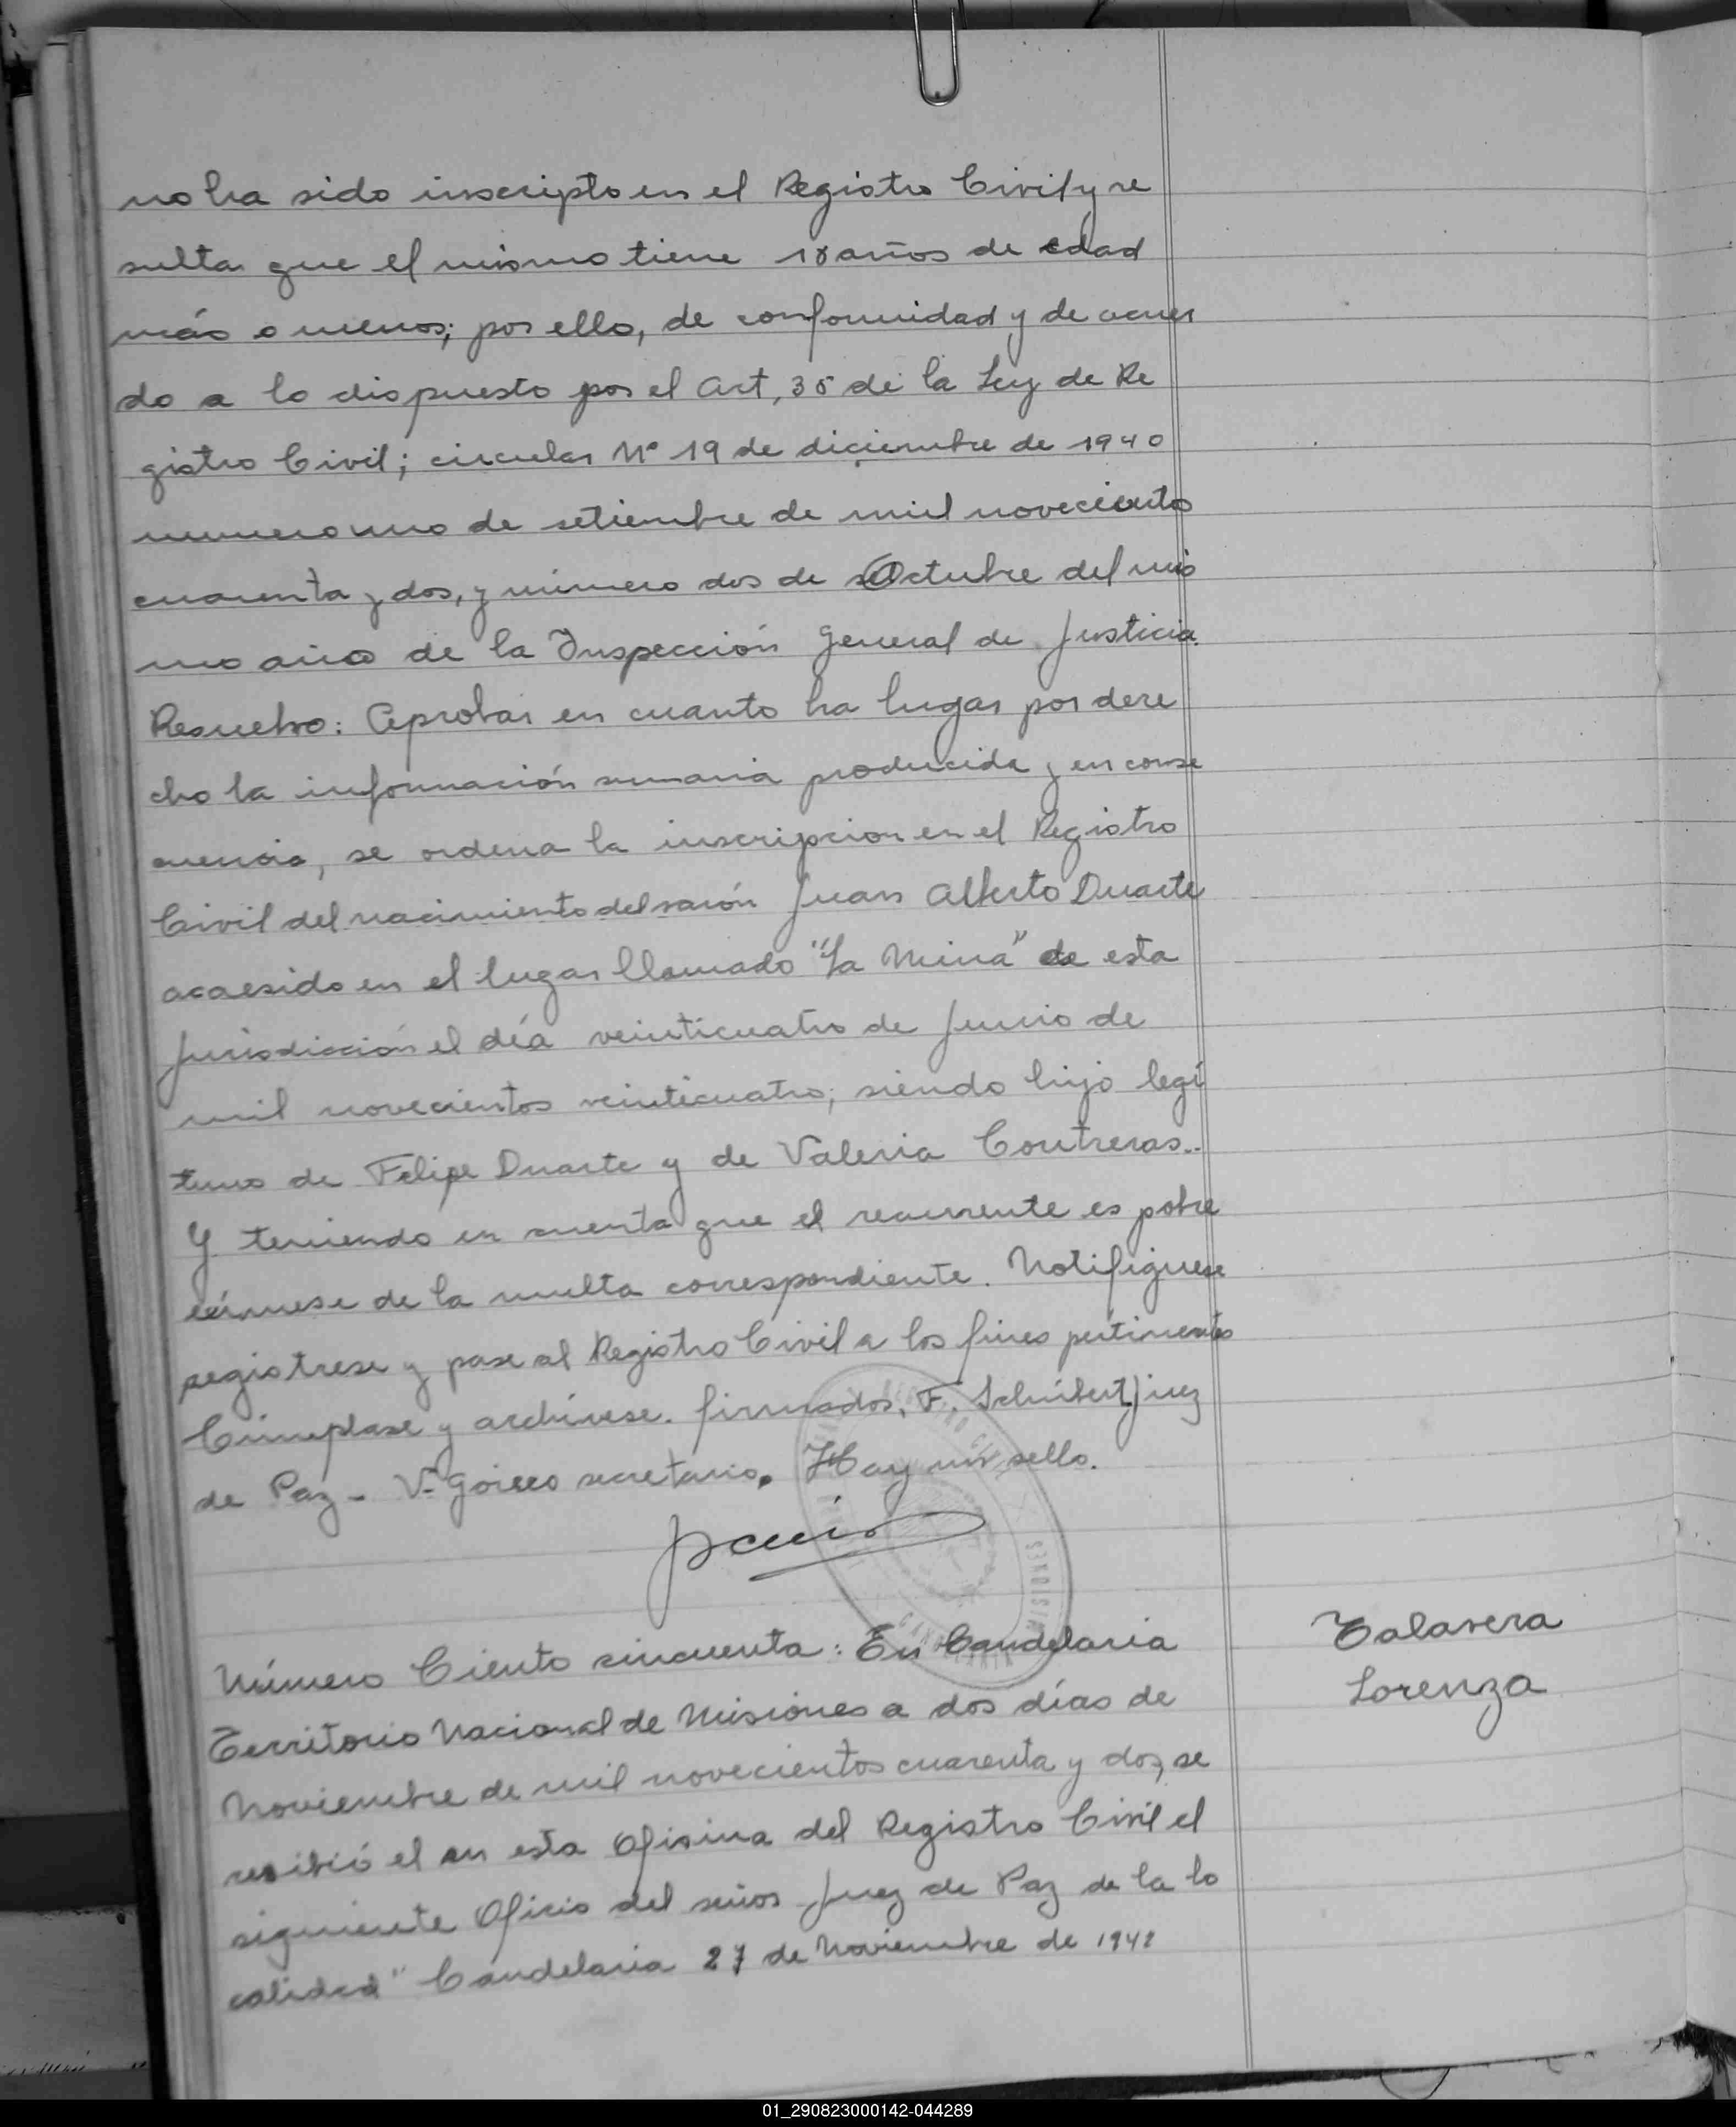 no ha sido inscripto en el Registro Civil y re
sulta que el mismo tiene 18 años de edad
más o menos; por ello, de conformidad y de acuer
do a lo dispuesto por el Art, 35 de la Ley de Re
gistro Civil; circular Nº 19 de diciembre de 1940
numero uno de setiembre de mil novecientos
cuarenta y dos, y número dos de Octubre del mis
mo año de la Inspección General de Justicia.
Resuelvo: Aprobar en cuanto ha lugar por dere
cho la información sumaria producida y en conse
cuencia, se ordena la inscripcion en el Registro
Civil del nacimiento del varón Juan Alberto Duarte
acaesido en el lugar llamado "La Mina" de esta
Jurisdicción el día veinticuatro de Junio de
mil novecientos veinticuatro; siendo hijo legí
timo de Felipe Duarte y de Valeria Contreras..
Y teniendo en cuenta que el recurrente es pobre
exímese de la multa correspondiente. Notifiquese
registrese y pase al Registro Civil a los fines pertinentes
Cúmplase y archívese. firmados, F. Schubert Juez
de Paz - V. secretario. Hay un sello.
Número Ciento cincuenta: En Candelaria
Territorio Nacional de Misiones a dos días de
Noviembre de mil novecientos cuarenta y dos, se
resibió el en esta Ofisina del Registro Civil el
siguiente Oficio del señor Juez de Paz de la lo
calidad" Candelaria 27 de Noviembre de 1942
Talavera
Lorenza
MISIONES
01_290823000142-044289